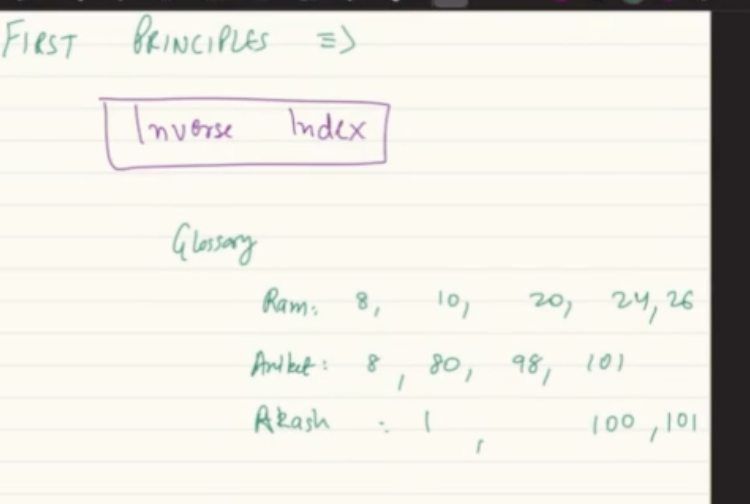 FIRST PRINCIPLES =>
Inverse Index
Glossary
Ram: 8, 10, 20, 24, 26
Aniket: 8, 80, 98, 101
Akash : 1, 100, 101